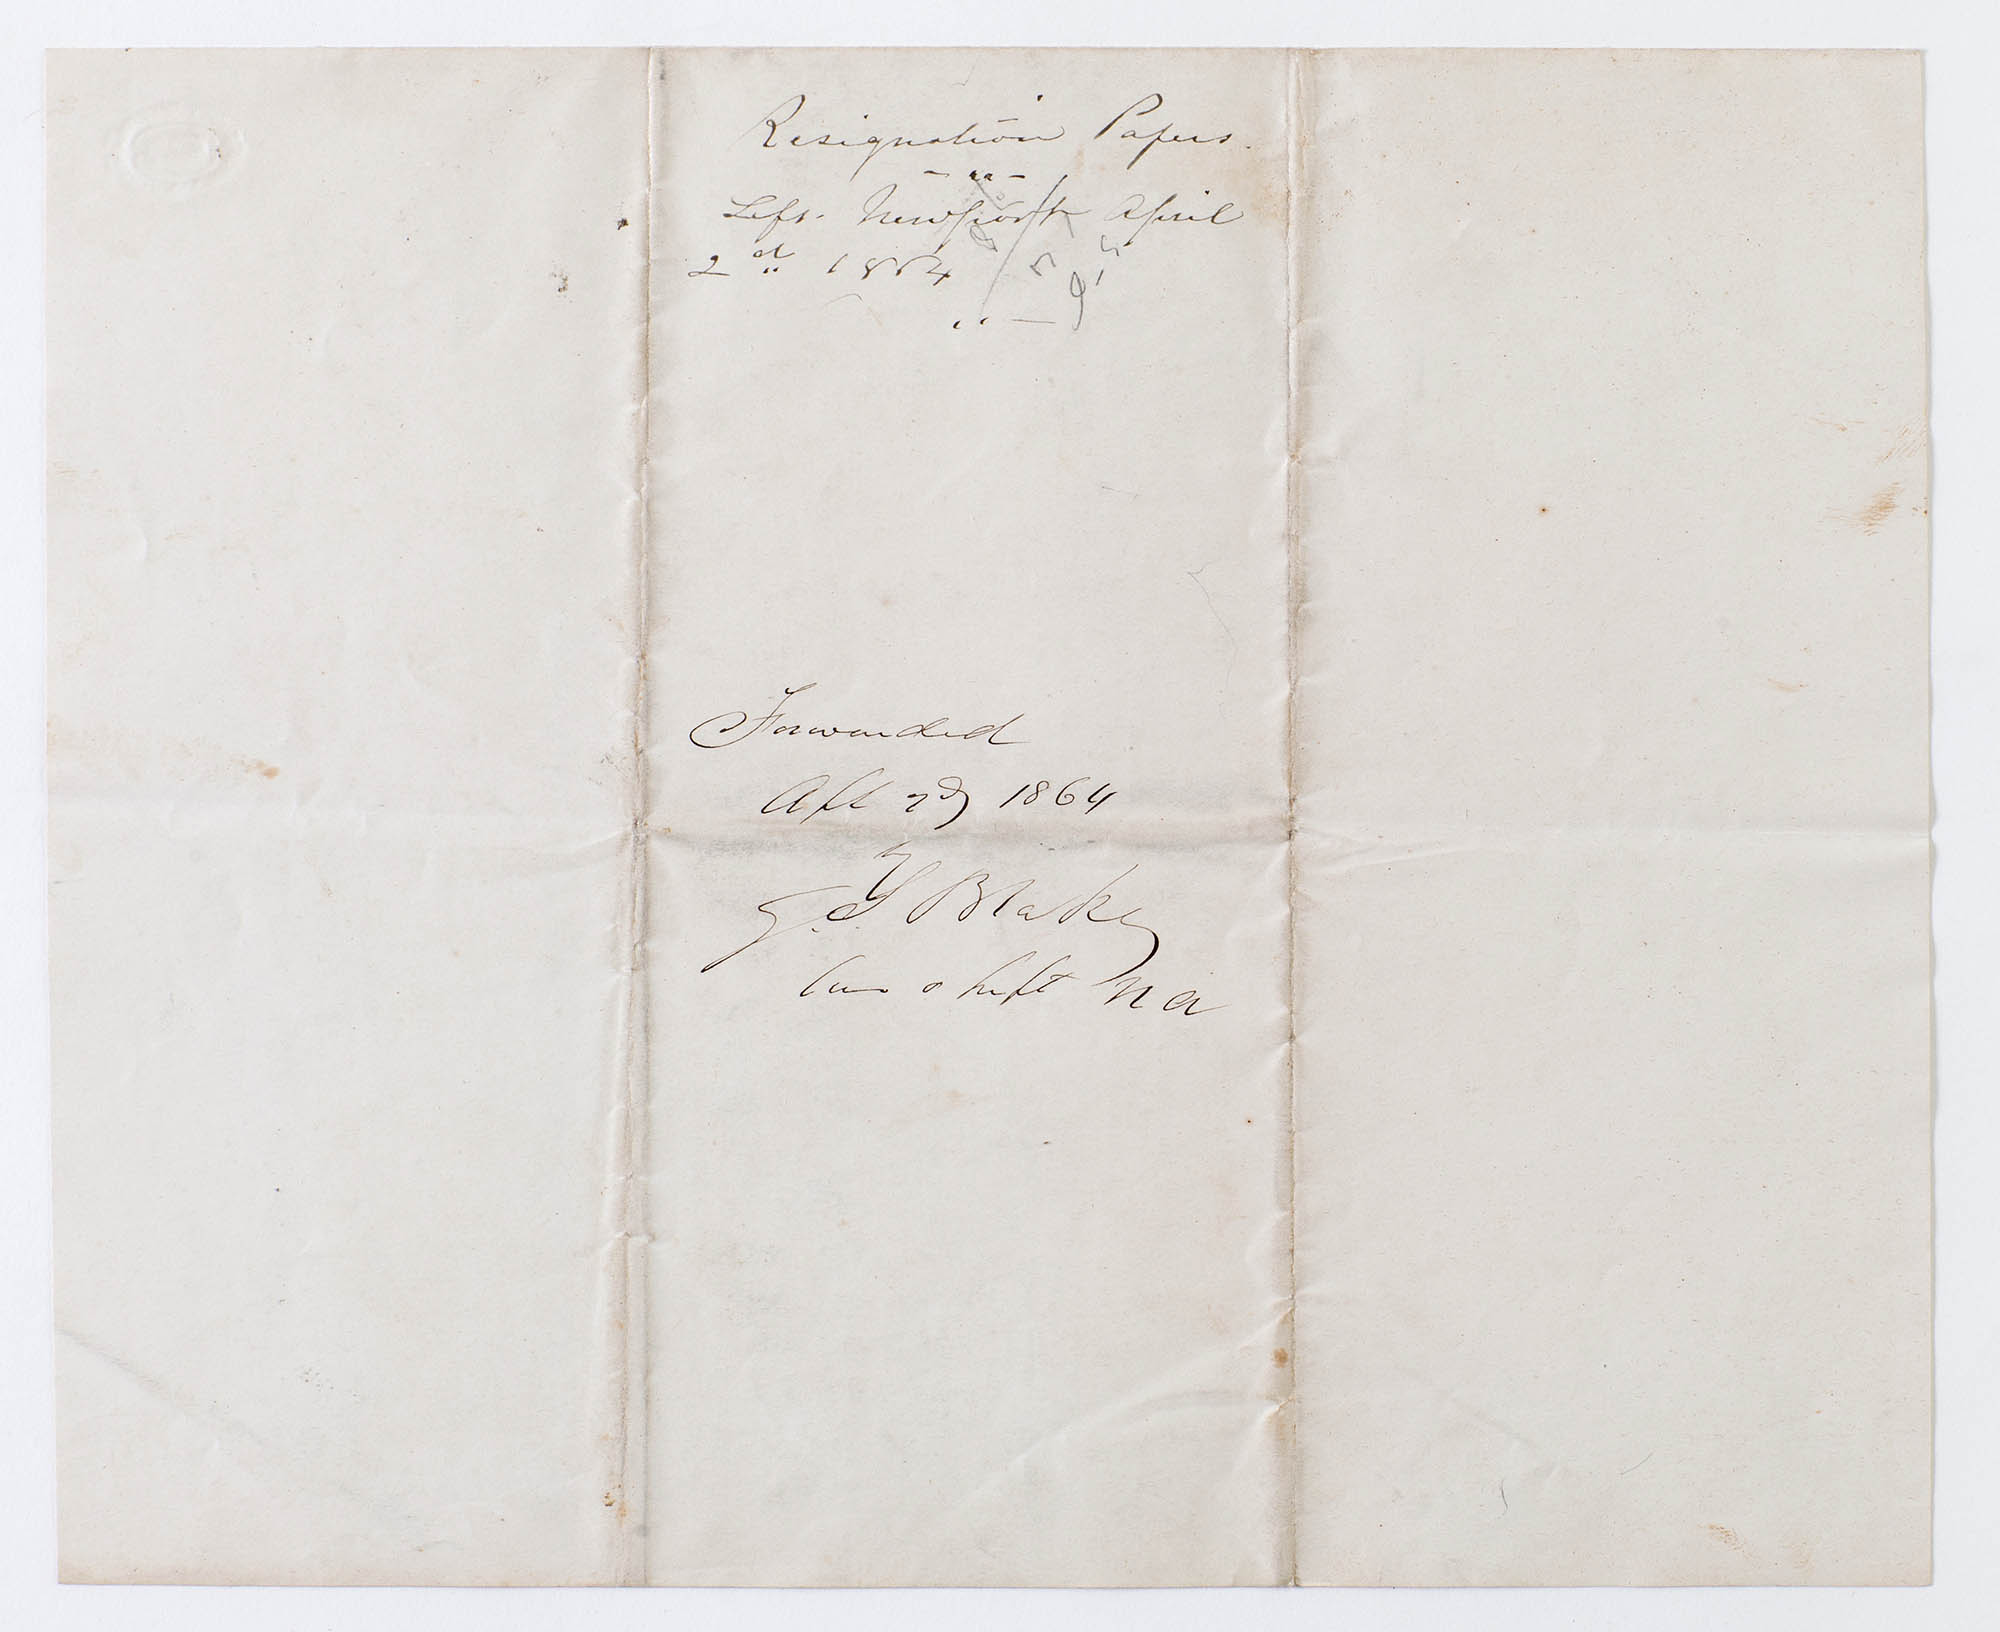 Resignation Papers.
Left Newport April
2d 1864
Forwarded
Apl 2d 1864
G. S. Blake